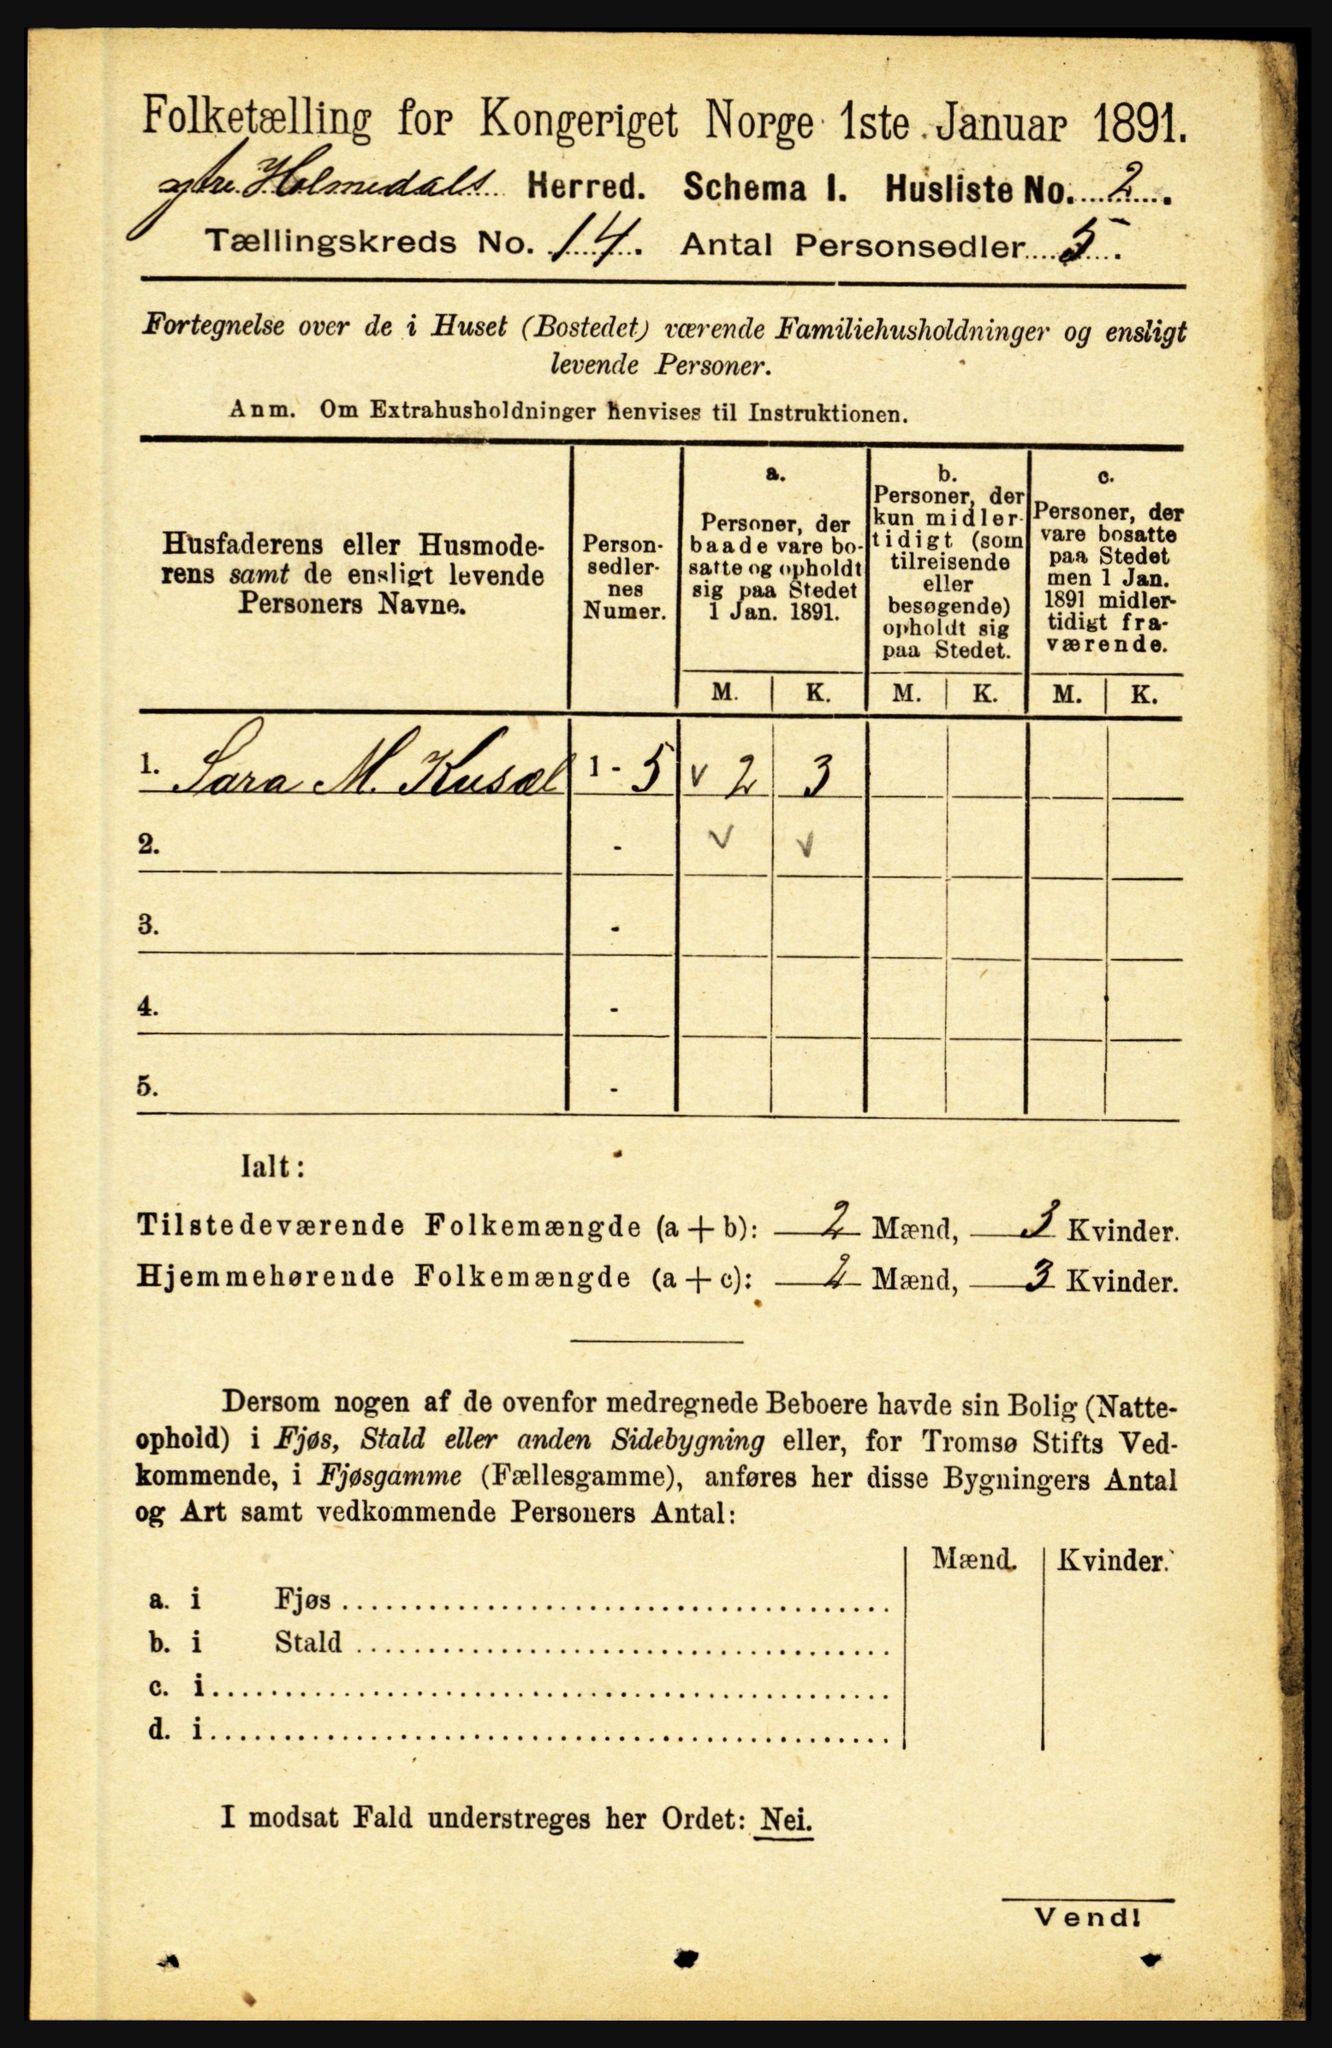 Folketælling for Kongeriget Norge 1ste Januar 1891.
ytre Holmedals Herred. Schema I. Husliste No. 2.
Tællingskreds No. 14. Antal Personsedler 5.
Fortegnelse over de i Huset (Bostedet) værende Familiehusholdninger og ensligt
levende Personer.
Anm. Om Extrahusholdninger henvises til Instruktionen.
Husfaderens eller Husmode-
rens samt de ensligt levende
Personers Navne.
Person-
sedler-
nes
Numer.
a.
Personer, der
baade vare bo-
satte og opholdt
sig paa Stedet
1 Jan. 1891.
b.
Personer, der
kun midler-
tidigt (som
tilreisende
eller
besøgende)
opholdt sig
paa Stedet.
c.
Personer, der
vare bosatte
paa Stedet
men 1 Jan.
1891 midler-
tidigt fra-
værende.
M. K. M. K. M. K.
1. Sara M. Kusæl 1 - 5 v 2 3
2. - v v
3. -
4. -
5. -
Ialt:
Tilstedeværende Folkemængde (a + b): 2 Mænd, 3 Kvinder.
Hjemmehørende Folkemængde (a + c): 2 Mænd, 3 Kvinder.
Dersom nogen af de ovenfor medregnede Beboere havde sin Bolig (Natte-
ophold) i Fjøs, Stald eller anden Sidebygning eller, for Tromsø Stifts Ved-
kommende, i Fjøsgamme (Fællesgamme), anføres her disse Bygningers Antal
og Art samt vedkommende Personers Antal:
Mænd. Kvinder.
a. i Fjøs
b. i Stald
c. i
d. i
I modsat Fald understreges her Ordet: Nei.
Vend!